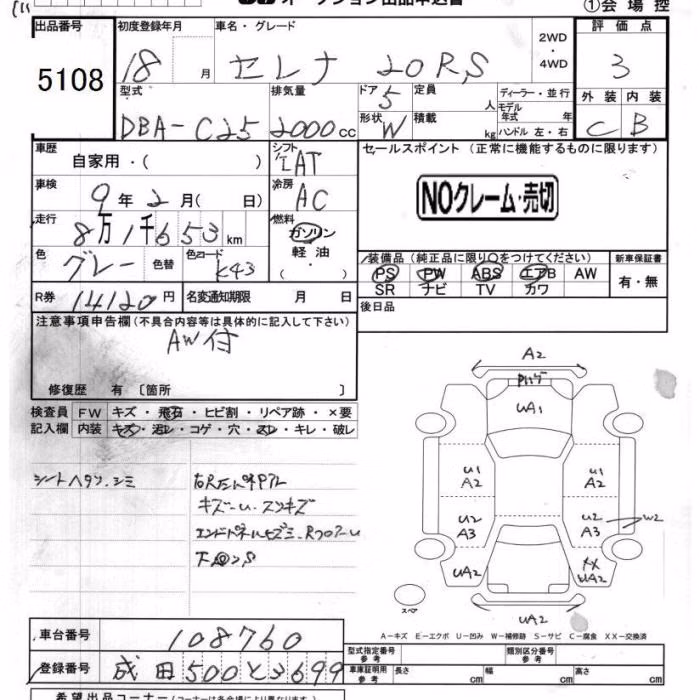 オークション出品申込書
①会場控
出品番号 初度登録年月 車名・グレード 評価点
5108 18 月 セレナ 20RS 2WD・4WD 3
型式 排気量 ドア 5 定員 人 ディーラー・並行 外装 内装
DBA-C25 2000cc 形状 W 積載 kg モデル年式 年 ハンドル 左・右 C B
車歴 自家用・( ) シフト AT セールスポイント (正常に機能するものに限ります)
車検 9年2月( 日) 冷房 AC NOクレーム・売切
走行 8万1千653km 燃料 ガソリン 軽油 ( ・ )
色 グレー 色替 色コード K43 装備品 (純正品に限り○をつけてください) 新車保証書
PS PW ABS エアB AW 有・無
SR ナビ TV カワ
R券 14120円 名変通知期限 月 日 後日品
注意事項申告欄 (不具合内容等は具体的に記入して下さい)
AW付
修復歴 有 〔箇所 〕
検査員 FW キズ・飛石・ヒビ割・リペア跡・×要
記入欄 内装 キズ・汚レ・コゲ・穴・スレ・キレ・破レ
シートヘタリ・シミ
キズ・U・スリキズ
A2
UA1
U1 A2
U1 A2
U2 A3
U2 A3 W2
UA2
XX UA2
UA2
スペ
A-キズ E-エクボ U-凹み W-補修跡 S-サビ C-腐食 XX-交換済
車台番号 108760
型式指定番号 参考 類別区分番号 参考
登録番号 成田500と3699
車庫証明用 参考 長さ cm 幅 cm 高さ cm
希望出品コーナー